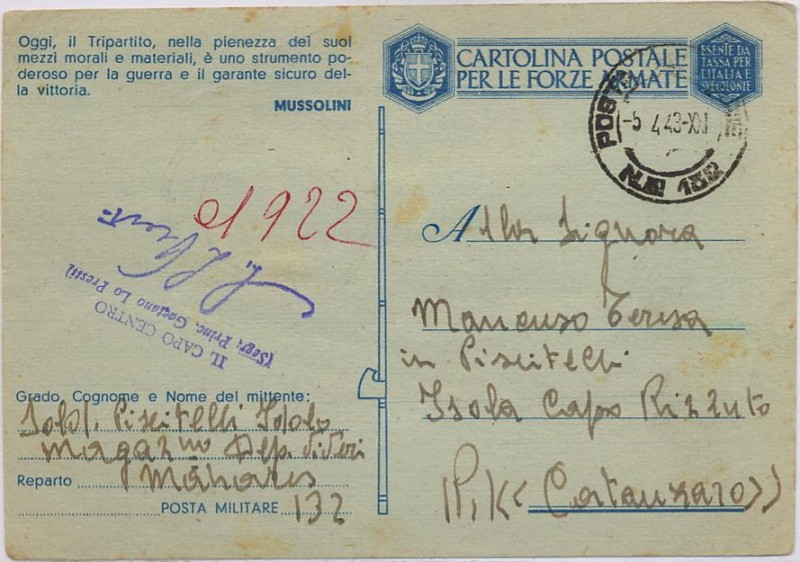 Oggi, il Tripartito, nella pienezza dei suoi
mezzi morali e materiali, è uno strumento po-
deroso per la guerra e il garante sicuro del-
la vittoria.
MUSSOLINI
CARTOLINA POSTALE
PER LE FORZE ARMATE
ESENTE DA
TASSA PER
L'ITALIA E
SUE COLONIE
POSTA
-5 4 43-XXI
N.R 132
1922
IL CAPO CENTRO
(Segr. Princ. Gaetano Lo Presti)
Alla Signora
Mancuso Teresa
in Piscitelli
Isola Capo Rizzuto
(Catanzaro)
Grado, Cognome e Nome del mittente:
Sold. Piscitelli Isidoro
Magaz no Dep. Viveri
Reparto Mahares
POSTA MILITARE 132